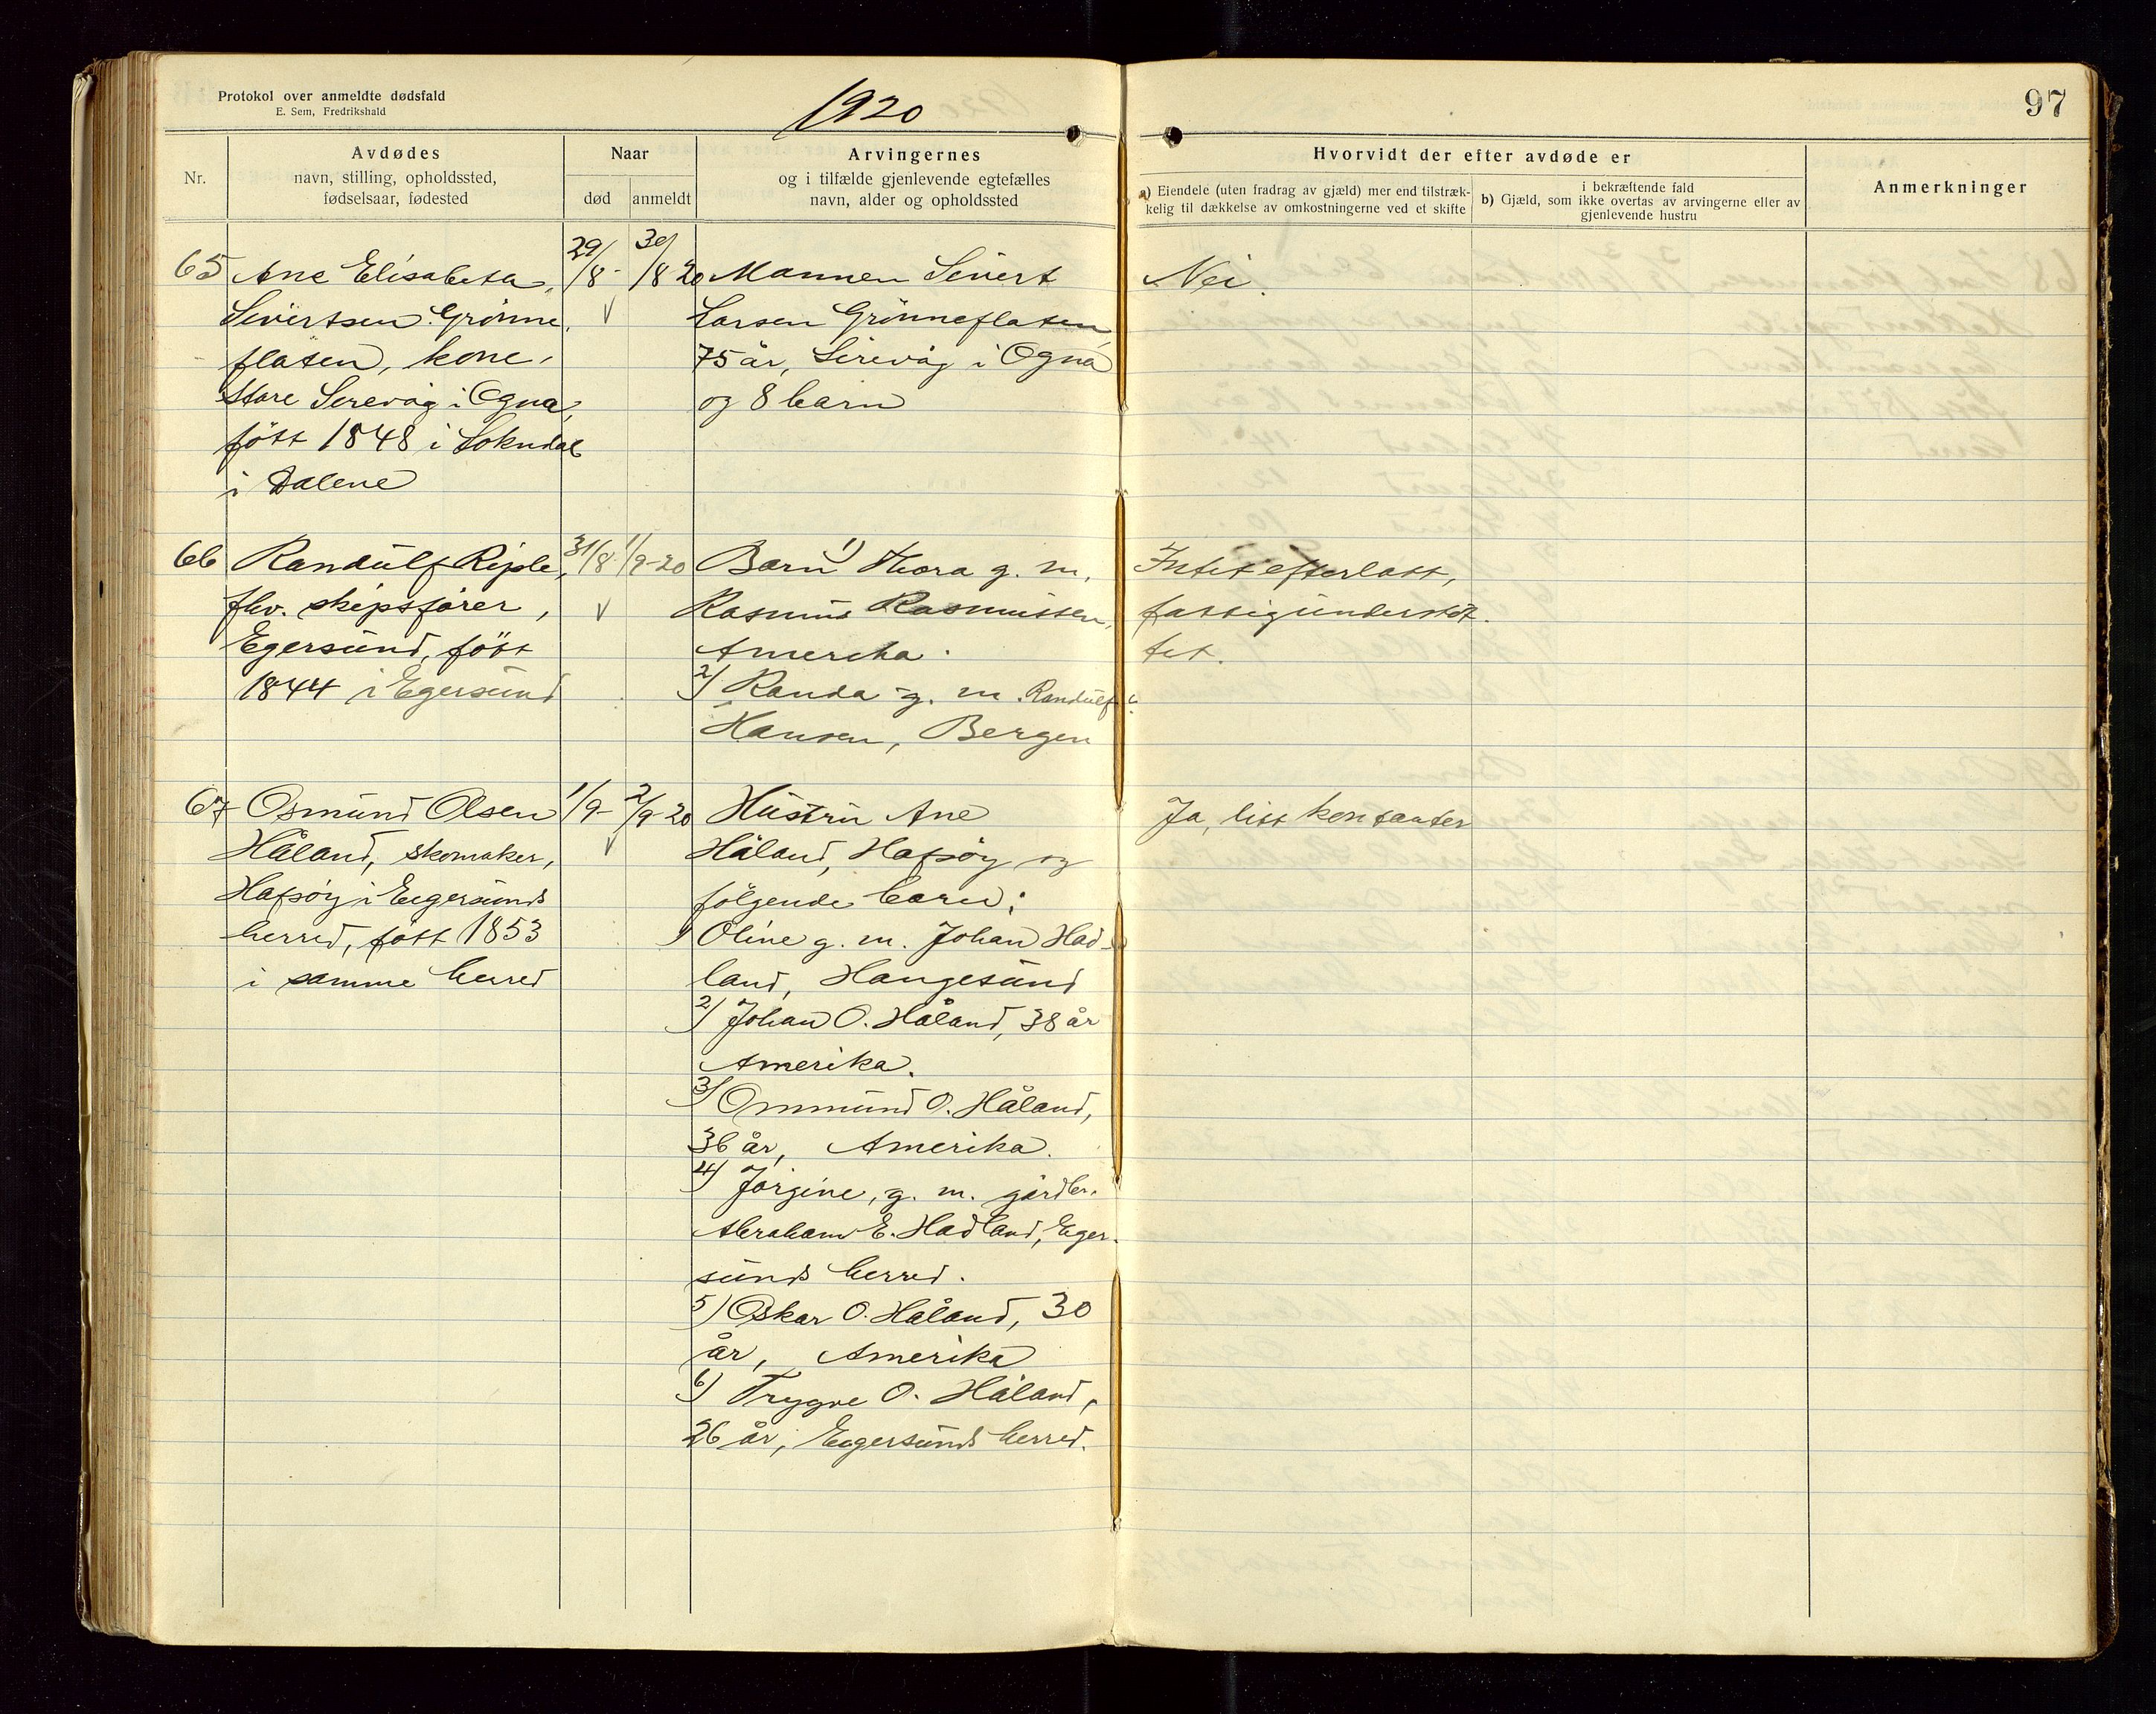 Protokol over anmeldte dødsfald
E. Sem, Fredrikshald
1920
97
Nr.
Avdødes
navn, stilling, opholdssted,
fødselsaar, fødested
Naar
død
anmeldt
Arvingernes
og i tilfælde gjenlevende egtefælles
navn, alder og opholdssted
Hvorvidt der efter avdøde er
a) Eiendele (uten fradrag av gjæld) mer end tilstræk-
kelig til dækkelse av omkostningerne ved et skifte
i bekræftende fald
b) Gjæld, som ikke overtas av arvingerne eller av
gjenlevende hustru
Anmerkninger
65 Ane Elisabeta
Sivertsen Grönne
flaten, kone,
Store Sirevåg i Ogna,
fött 1848 i Sokndal
i Dalene
29/8- 30/8 20
Mannen Sivert
Larsen Grönneflaten,
75 år, Sirevåg i Ogna
og 8 barn
Nei.
66 Randulf Riple,
fhv. skipsförer,
Egersund, fött
1844 i Egersund
31/8 1/9-20
Barn 1) Thora g. m.
Rasmus Rasmussen,
Amerika.
2) Randa g. m. Randulf
Hansen, Bergen
Intet efterlatt,
fattigunderstöt-
tet.
67 Osmund Olsen
Håland, skomaker,
Hafsöy i Eigersunds
herred, fött 1853
i samme herred
1/9- 2/9-20
Hustru Ane
Håland, Hafsöy og
fölgende barn:
1) Oline g. m. Johan Had-
land, Haugesund
2) Johan O. Håland, 38 år
Amerika.
3) Ommund O. Håland,
36 år, Amerika.
4) Jörgine, g. m. gårdbr.
Abraham E. Hadland, Eiger-
sunds herred.
5) Oskar O. Håland, 30
år, Amerika
6) Trygve O. Håland,
26 år, Eigersunds herred.
Ja, litt kontanter